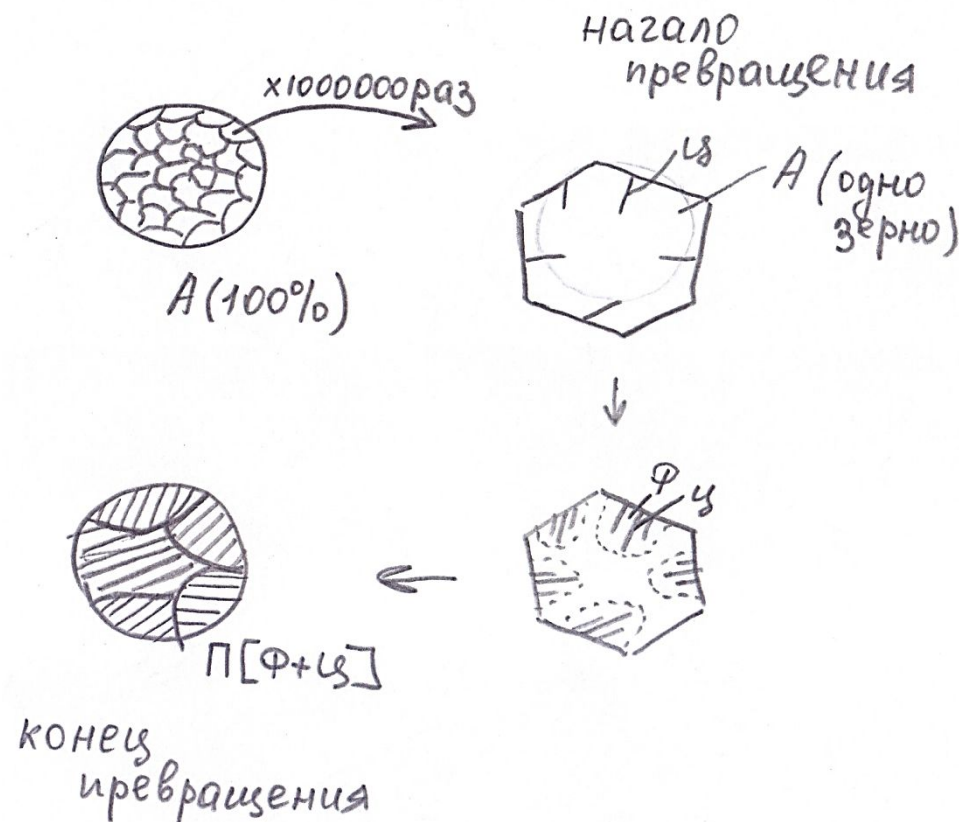 начало
превращения
х1000000 раз
ц
А (одно
зерно)
А (100%)
Ф
ц
П [Ф+ц]
конец
превращения